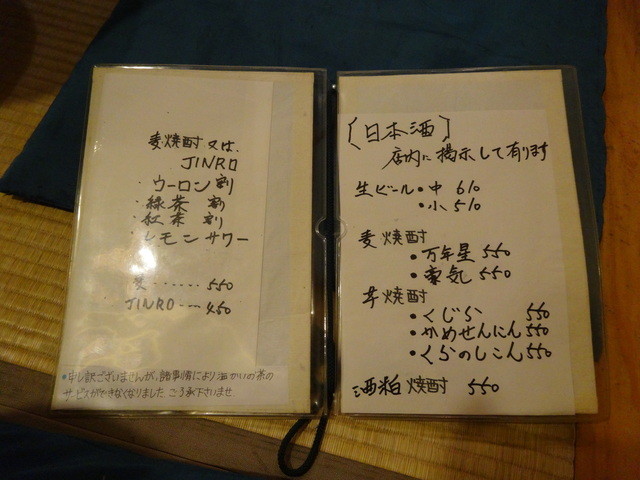 麦焼酎又は、
JINRO
・ウーロン割
・緑茶割
・紅茶割
・レモンサワー
麦‥‥‥550
JINRO‥‥450
•申し訳ございませんが、諸事情により温かいお茶の
サービスができなくなりました ごう承下さいませ
〔日本酒〕
店内に掲示して有ります
生ビール・中 610
・小 510
麦焼酎
・万年星 550
・豪気 550
芋焼酎
・くじら 550
・かめせんにん 550
・くらのしこん 550
酒粕焼酎 550